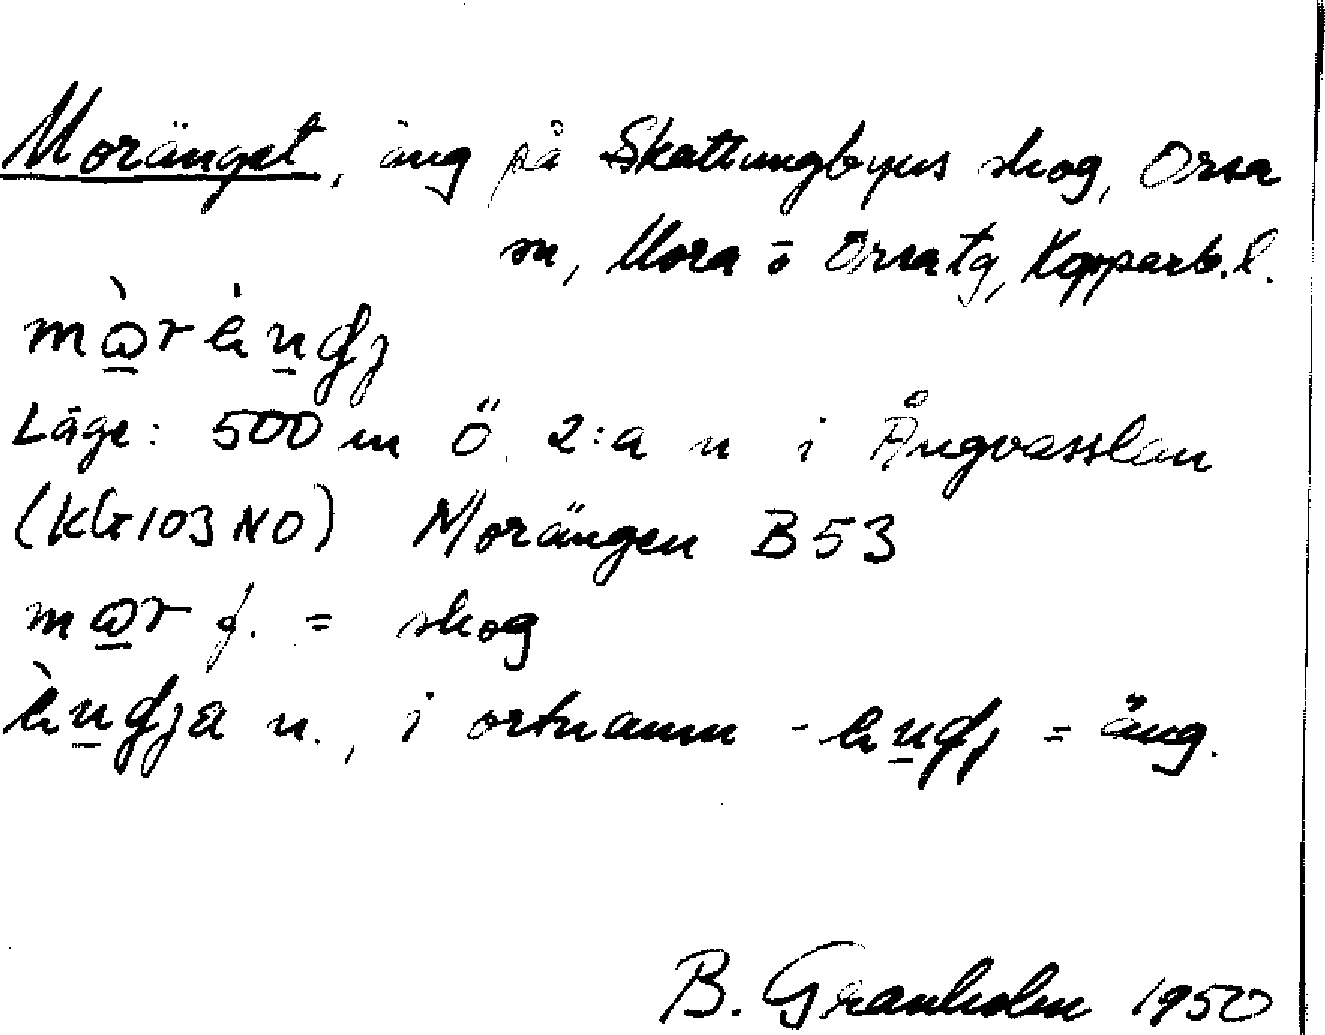 Moränget, äng på Skattungbyns skog, Orsa
sn, Mora o Orsa tg, Kopparb. l.
Läge: 500 m Ö 2:a n i Ångvasslan
(KG 103 NO) Morängen B 53
f. = skog
n., i ortnamn = äng.
B. Granholm 1950